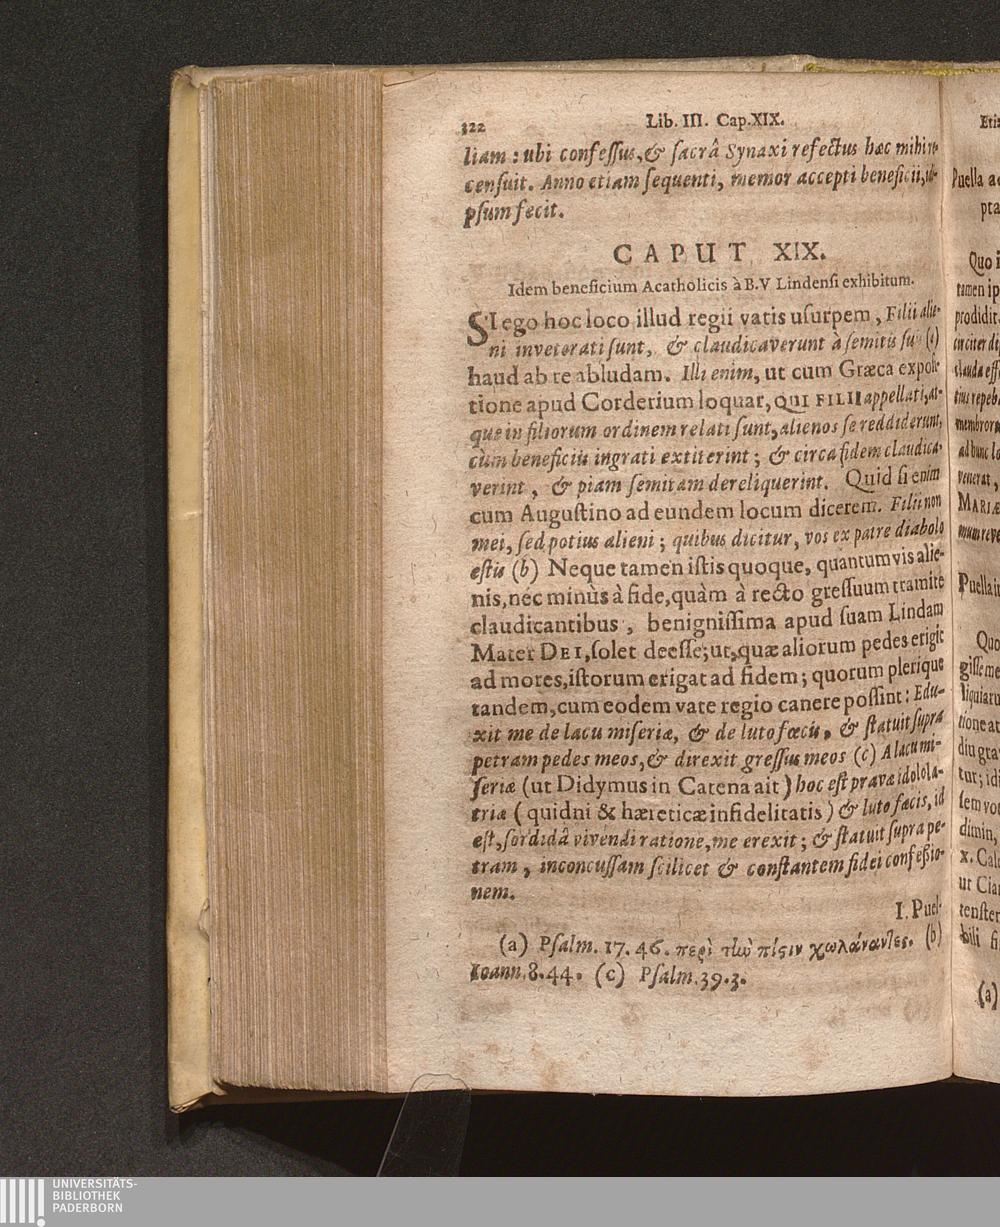 322 Lib. III. Cap. XIX.
liam: ubi confeſſus, & ſacrâ Synaxi refectus hæc mihi re-
cenſuit. Anno etiam ſequenti, memor accepti beneficii, id-
pſum fecit.
CAPUT XIX.
Idem beneficium Acatholicis à B.V Lindenſi exhibitum.
SI ego hoc loco illud regii vatis uſurpem, Filii alie-
ni inveterati ſunt, & claudicaverunt à ſemitis ſuis (a)
haud ab re abludam. Illi enim, ut cum Græca expoſi-
tione apud Corderium loquar, QUI FILII appellati, at-
que in filiorum ordinem relati ſunt, alienos ſe reddiderunt,
cùm beneficiis ingrati extiterint; & circa fidem claudica-
verint, & piam ſemitam dereliquerint. Quid ſi enim
cum Auguſtino ad eundem locum dicerem. Filii non
mei, ſed potius alieni; quibus dicitur, vos ex patre diabolo
eſtis (b) Neque tamen iſtis quoque, quantumvis alie-
nis, nec minùs à fide, quàm à recto greſſuum tramite
claudicantibus, benigniſſima apud ſuam Lindam
Mater DEI, ſolet deeſſe; ut, quæ aliorum pedes erigit
ad mores, iſtorum erigat ad fidem; quorum plerique
tandem, cum eodem vate regio canere poſſint: Edu-
xit me de lacu miſeriæ, & de luto fœcis, & ſtatuit ſupra
petram pedes meos, & direxit greſſus meos (c) A lacu mi-
ſeriæ (ut Didymus in Catena ait) hoc eſt prava idolola-
tria (quidni & hæreticæ infidelitatis) & luto fæcis, id
eſt, ſordidâ vivendi ratione, me erexit; & ſtatuit ſupra pe-
tram, inconcuſſam ſcilicet & conſtantem fidei confeſſio-
nem.
I. Puel-
(a) Pſalm. 17. 46. περὶ τὴν πίςιν χωλάναντες. (b)
Ioann. 8. 44. (c) Pſalm. 39. 3.
Puella
Quo
tamen
prodidit.
venerat,
MARIÆ
Quo
(a)
UNIVERSITÄTS-
BIBLIOTHEK
PADERBORN